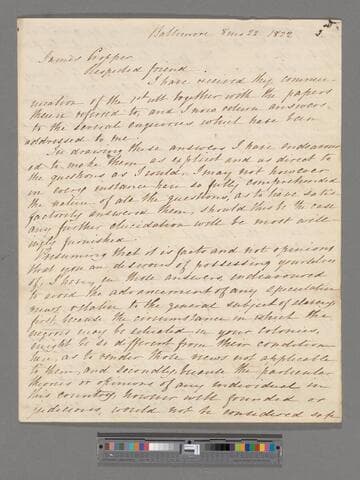 Baltimore 8mo 22. 1822
James Cropper
Respected friend.
I have received thy commu-
nication of the 1st ult together with the papers
therein referred to, and I now return answers
to the several enquiries which have been
addressed to me.
In drawing these answers I have endeavour-
ed to make them as explicit and as direct to
the questions as I could. I may not however
in every instance have so fully comprehended
the nature of all the questions, as to have satis-
factorily answered them, should this be the case
any further elucidation will be most will-
ingly furnished.
Presuming that it is facts and not opinions
that you are desirous of possessing yourselves
of, I have, in these answers endeavoured
to avoid the advancement of any speculative
views, relative to the general subject of slavery
first, because the circumstances in which the
negroes may be situated in your colonies,
might be so different from their condition
here, as to render those views not applicable
to them, and secondly, because the particular
theories or opinions of any individual in
this country, however well founded or
judicious, would not be considered